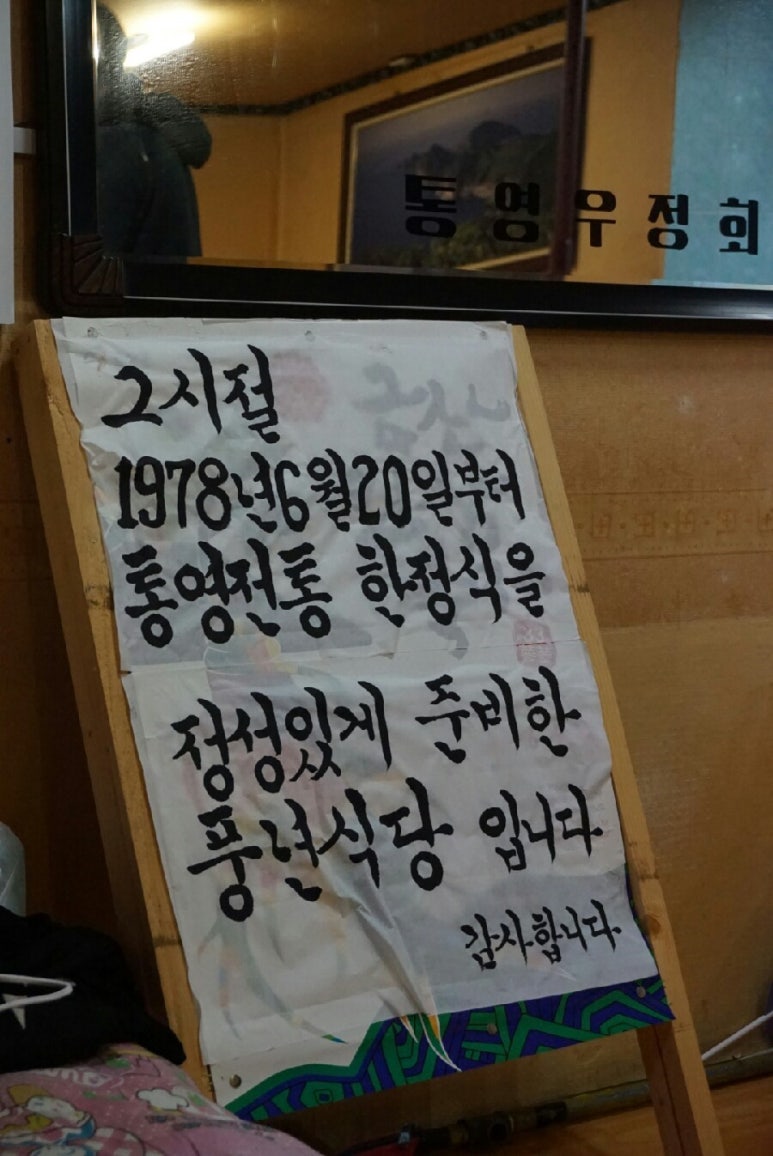 통영우정회
그시절
1978년6월20일부터
통영전통 한정식을
정성있게 준비한
풍년식당 입니다
감사합니다